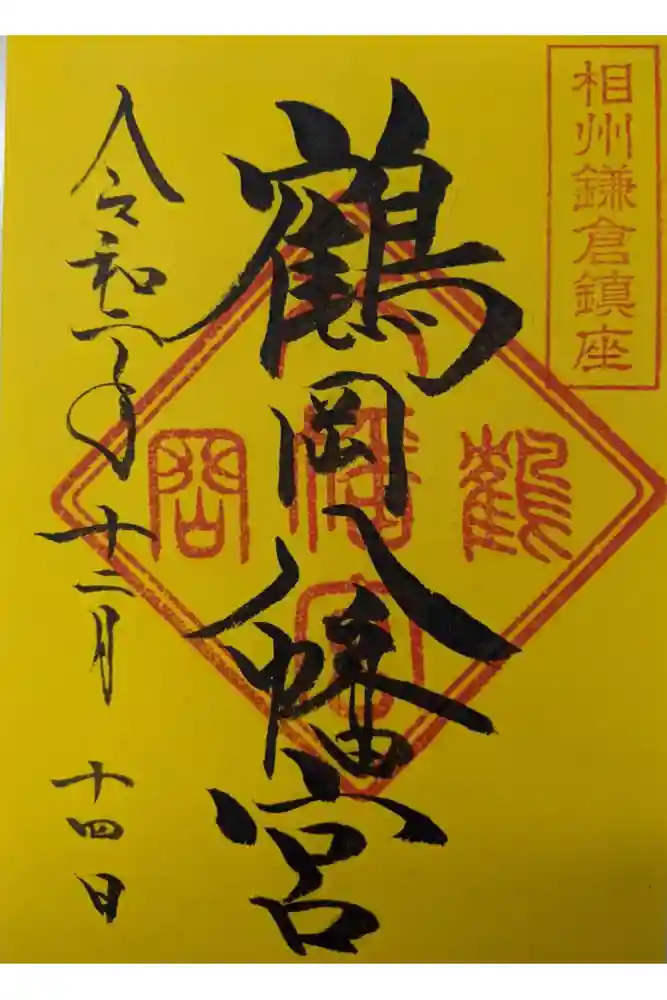 相州鎌倉鎮座
鶴岡八幡宮
鶴岡八幡宮
令和六年十二月十四日